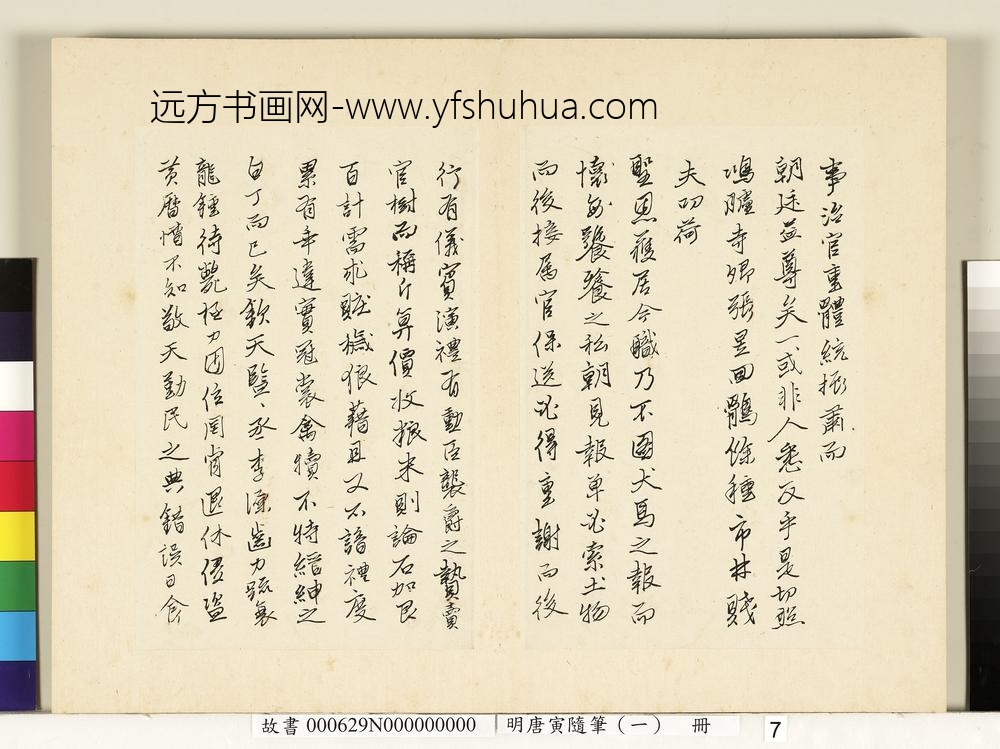 远方书画网-www.yfshuhua.com
事治官重體統振肅而
朝廷益尊矣一或非人悉反乎是切照
鴻臚寺卿張昱回鶻餘種市井賤
夫叨荷
聖恩薦居今職乃不圖犬馬之報而
懷饕餮之私朝見報单必索土物
而後接属官保送必得重謝而後
行有儀賓演禮有勳臣襲爵之贄賣
官樹而稱斤算價收粮米則論石加
百計需求賍穢狼藉且又不諳禮度
累有乖違實冠裳禽犢不特縉紳之
白丁而已矣欽天監丞李源齒力衰
龍鍾待斃極力因位罔肯退休僭盗
黄暦懵不知敬天勤民之典錯误日食
故書 000629N000000000 明唐寅隨筆（一） 冊 7